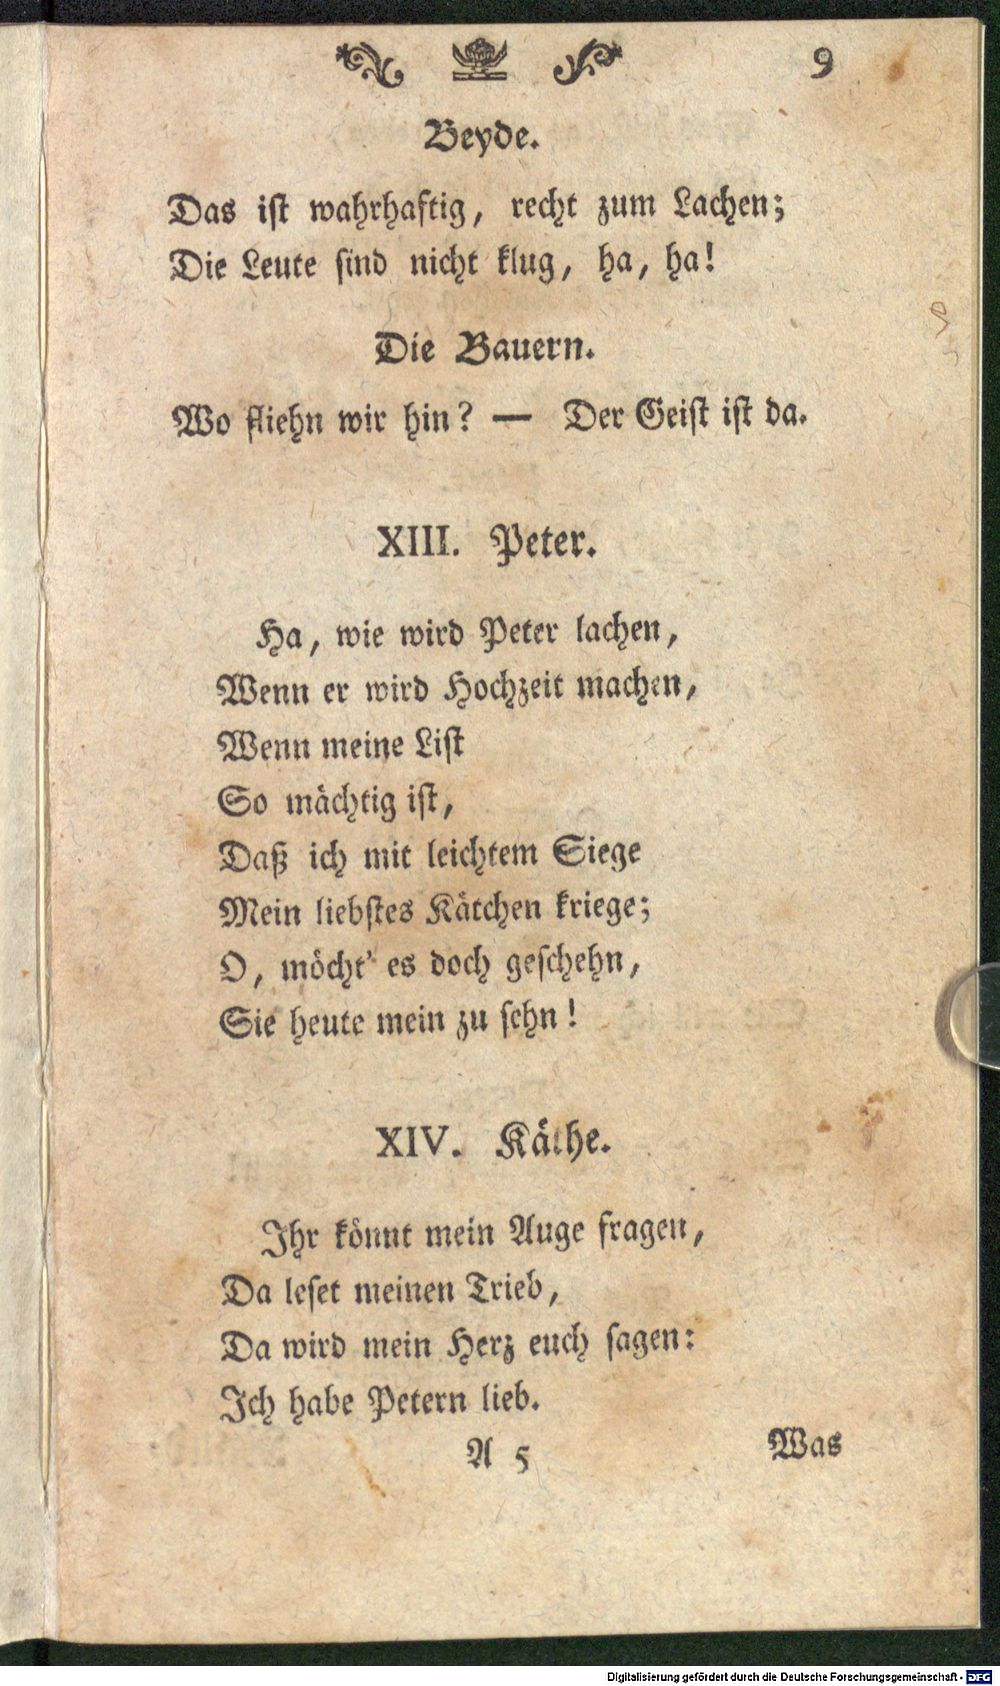 9
Beyde.
Das ist wahrhaftig, recht zum Lachen;
Die Leute sind nicht klug, ha, ha!
Die Bauern.
Wo fliehn wir hin? — Der Geist ist da.
XIII. Peter.
Ha, wie wird Peter lachen,
Wenn er wird Hochzeit machen,
Wenn meine List
So mächtig ist,
Daß ich mit leichtem Siege
Mein liebstes Kätchen kriege;
O, möcht' es doch geschehn,
Sie heute mein zu sehn!
XIV. Käthe.
Ihr könnt mein Auge fragen,
Da leset meinen Trieb,
Da wird mein Herz euch sagen:
Ich habe Petern lieb.
A 5 Was
Digitalisierung gefördert durch die Deutsche Forschungsgemeinschaft - DFG